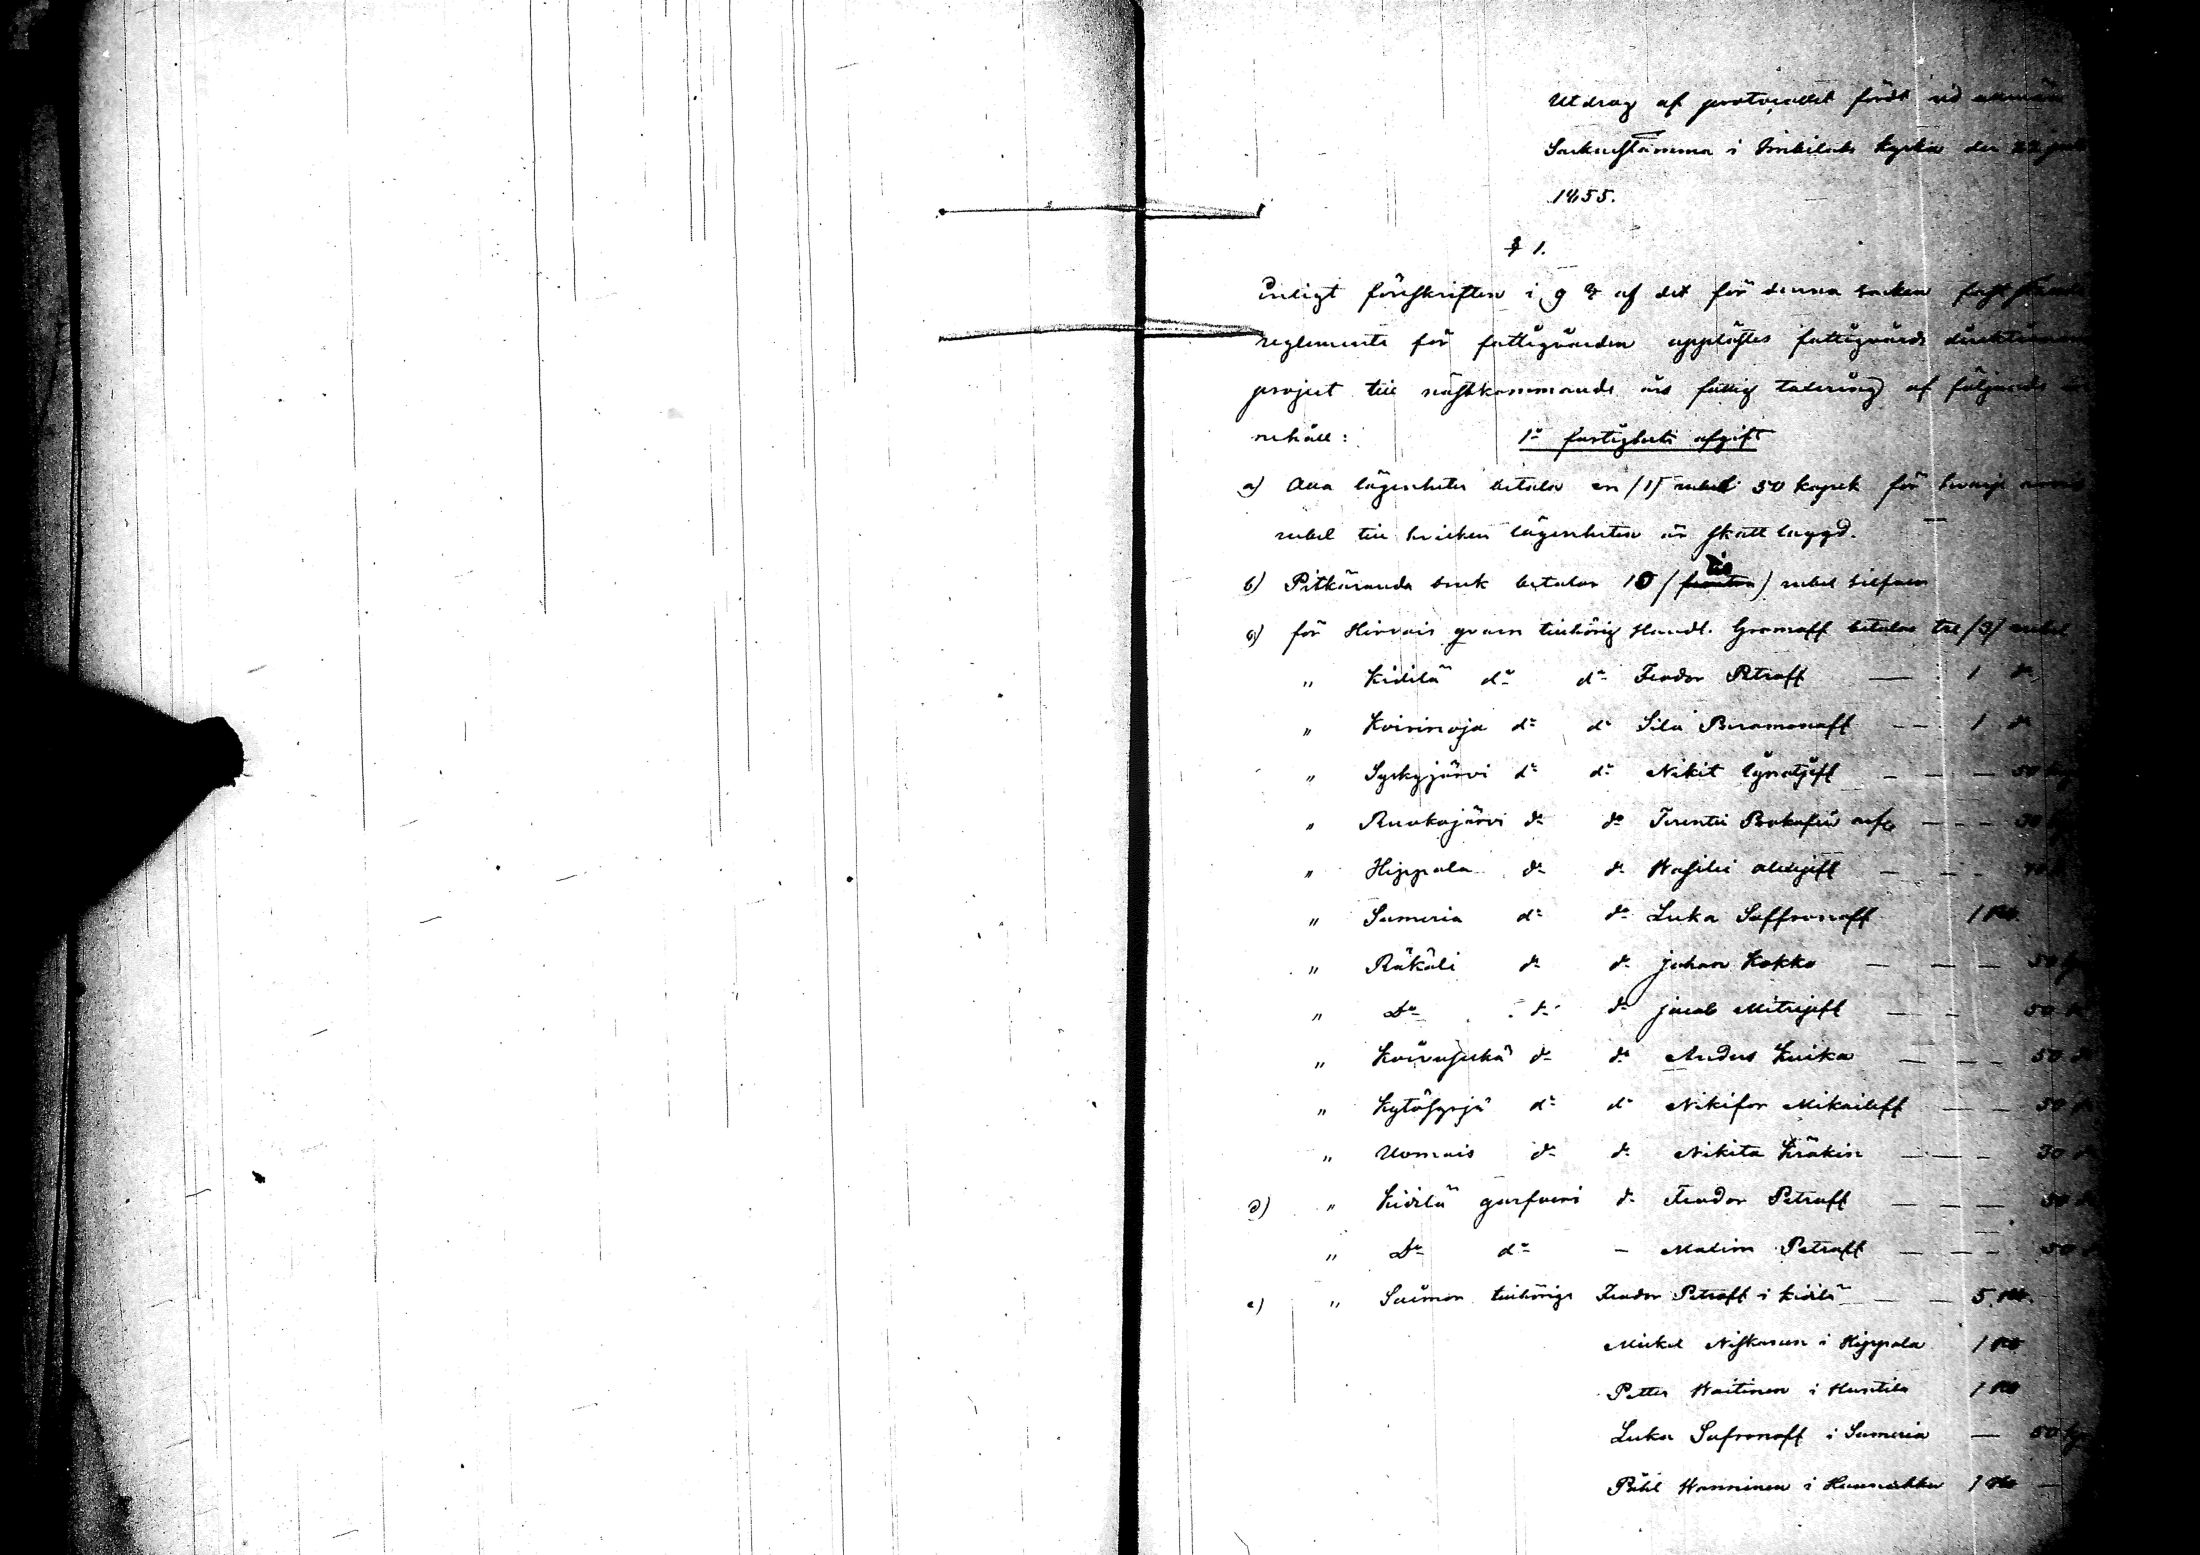 Utdrag af protocollet fördt vid allmän
Sockenstämma i Imbilaks kyrka den 22 juli
1855.
§ 1.
Enligt föreskriften i 9 § af det för denna socken fastställda
reglemente för fattigvården upplästes fattigvårds direktionens
project till nästkommande års fattig taxering af följande in
nehåll:
1º fastighets afgift
a) Alla lägenheter betala en /1/ rubel 50 kopek för hvarje
rubel till hvilken lägenheten är skattlaggd.
b) Pitkäranda bruk betalar 10 /tio) rubel silfver
c) för Hirvais qvarn tillhörig Handl. Gromoff betalas tre /3/ rubel
" Kidilä dº dº Feodor Petroff — 1 dº
" Koirinoja dº dº Sila — — 1 dº
" Syskyjärvi dº dº Nikit Ignatjeff — — — 50 kop
" Ruokojärvi dº dº Terentei Prokofieu — — — 30
" Hippola dº dº Wasilei Alexejeff — — —
" Sumeria dº dº Luka Saffronoff 1 Rb.
" Räkäli dº dº Johan Kokko — — — 50
" Dº dº dº Jacob Mitrejeff — — 50
" Koivuselkä dº dº Anders Kuika — — — 50 dº
" Kytösyrjä dº dº Nikifor Mikaileff — — 30
" Uomais dº dº Nikita Kräkin — — — 30
d) " Kidilä garfveri dº Feodor Petroff — — — 50
" Dº dº — Maxim Petroff — — — 50
e) " Saimor tillhörige Feodor Petroff i Kidilä — — 5 Rb.
Mickel Niskanen i Hippola 1 Rb
Petter Waitinen i Huntila 1 Rb
Luka Safronoff i Sumeria — 50
Påhl Wanninen i 1 Rb —